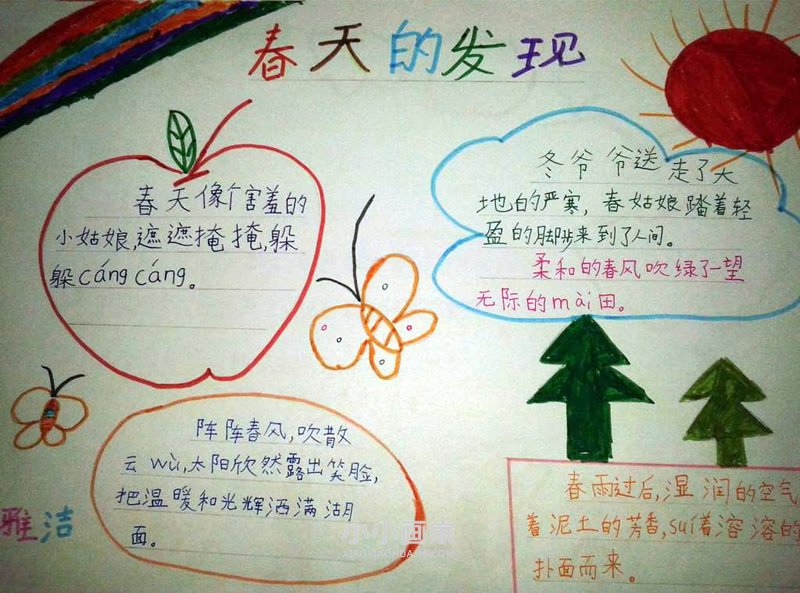 春天的发现
春天像个害羞的
小姑娘,遮遮掩掩,躲
躲cáng cáng。
冬爷爷送走了大
地的严寒,春姑娘踏着轻
盈的脚步来到了人间。
柔和的春风吹绿了一望
无际的mài田。
阵阵春风,吹散
云wù,太阳欣然露出笑脸,
把温暖和光辉洒满湖
面。
春雨过后,湿润的空气
着泥土的芳香,suí着溶溶的
扑面而来。
雅洁
小小画家
XIAOXIAOHUAJIA.COM